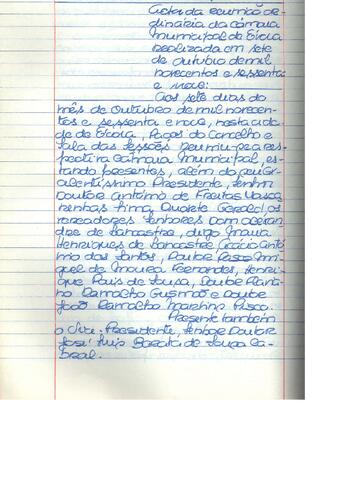 Acta da reunião or-
dinária da câmara
municipal de Évora
realizada em sete
de outubro de mil
novecentos e sessenta
e nove:
Aos sete dias do
mês de outubro de mil novecen-
tos e sessenta e nove, nesta cida-
de de Évora, Paços do Concelho e
Sala das Sessões reuniu-se a res-
pectiva Câmara Municipal, es-
tando presentes, além do seu
Presidente, Senhor
Doutor António de Freitas Vasco
Lima, Duarte os
vereadores Senhores Dom Alexan-
dre de Lancastre, Maria
Henriques de Lancastre Antó-
nio dos Santos, Mi-
guel de Moura Fernandes, Henri-
que Pais de Sousa,
Ramalho Gusmão e
João Ramalho Martins
Presente também
o Vice-Presidente, Senhor Doutor
José Luis Barata de Sousa Ca-
bral.